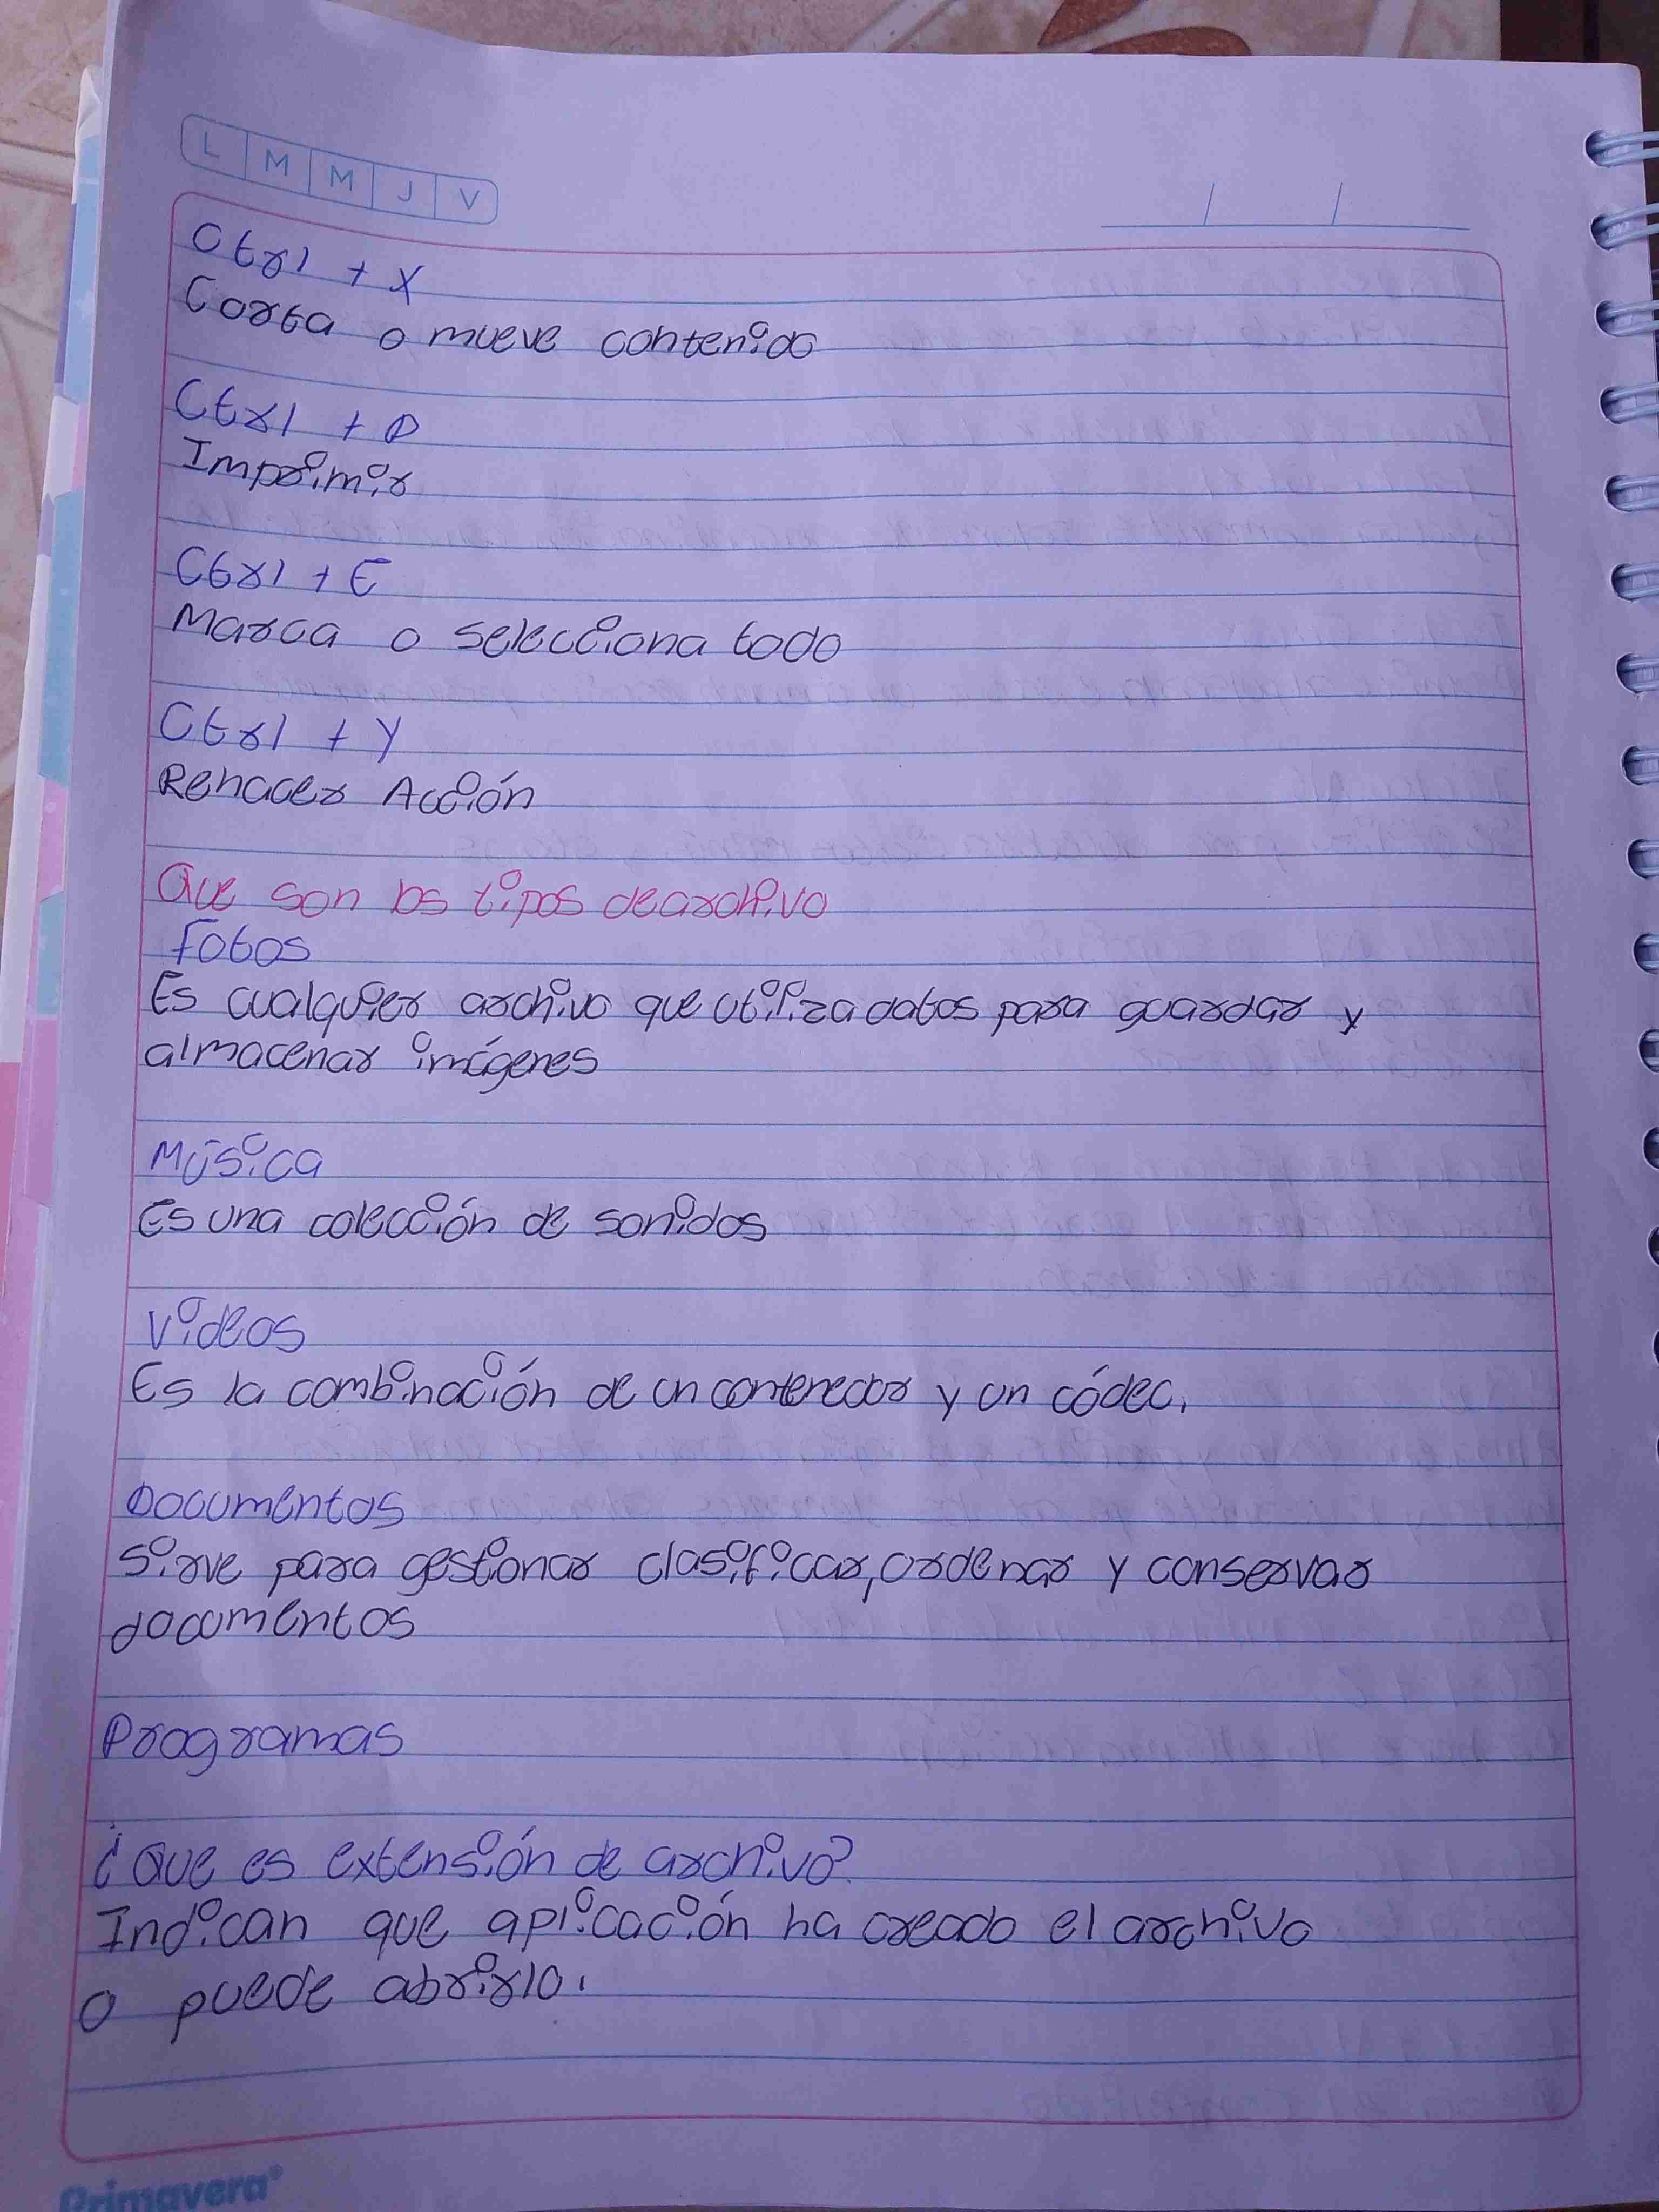 L M M J V
Ctrl + X
Corta o mueve contenido
Ctrl + P
Imprimir
Ctrl + E
Marca o selecciona todo
Ctrl + Y
Rehacer Acción
Que son los tipos de archivo
Fotos
Es cualquier archivo que utiliza datos para guardar y
almacenar imágenes
Música
Es una colección de sonidos
Videos
Es la combinación de un contenedor y un códec.
Documentos
Sirve para gestionar clasificar, ordenar y conservar
documentos
Programas
¿Que es extensión de archivo?
Indican que aplicación ha creado el archivo
o puede abrirlo.
Primavera